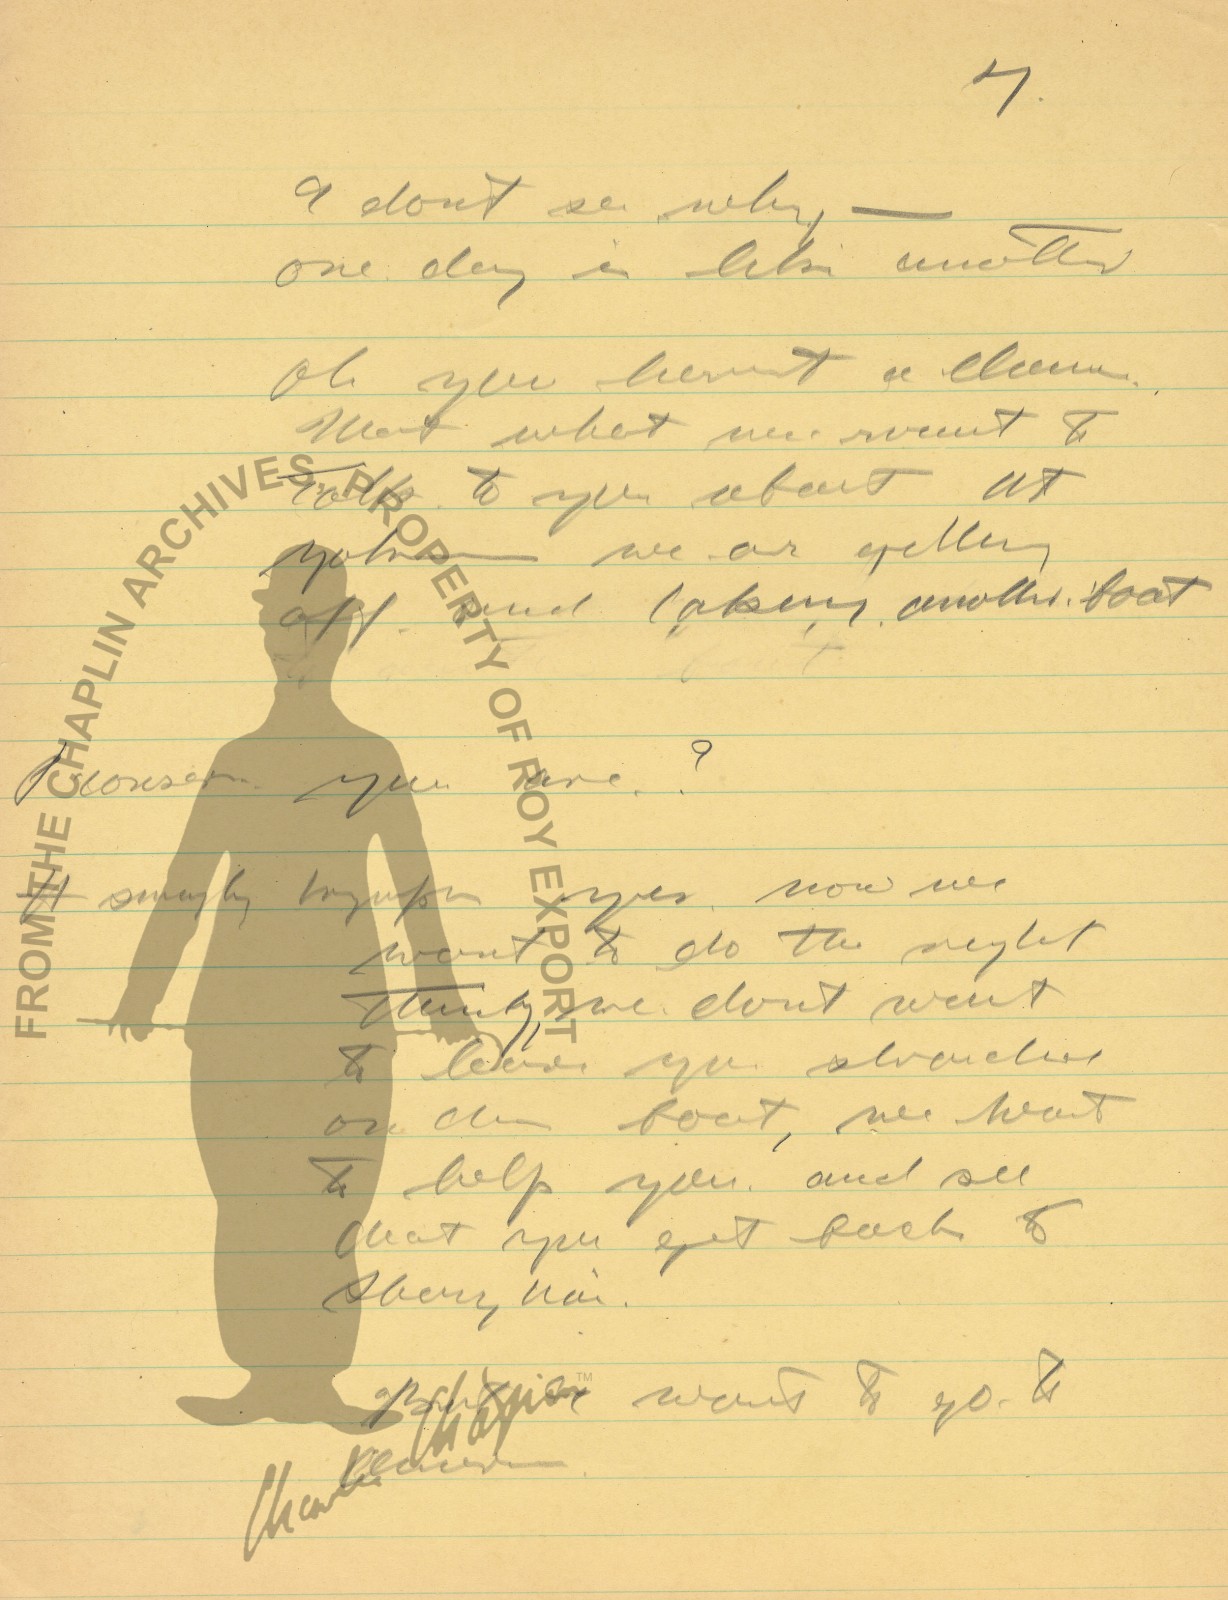 7.
I dont see why —
one day is like another
Oh you havent a chance.
that what we want to
talk to you about at
we are getting
off and taking another boat
you are. ?
yes. now we
want to do the right
thing, we dont want
to leave you stranded
on the boat, we want
to help you and see
that you get back to
Shanghai.
But I want to go to
FROM THE CHAPLIN ARCHIVES, PROPERTY OF ROY EXPORT
Charlie Chaplin™